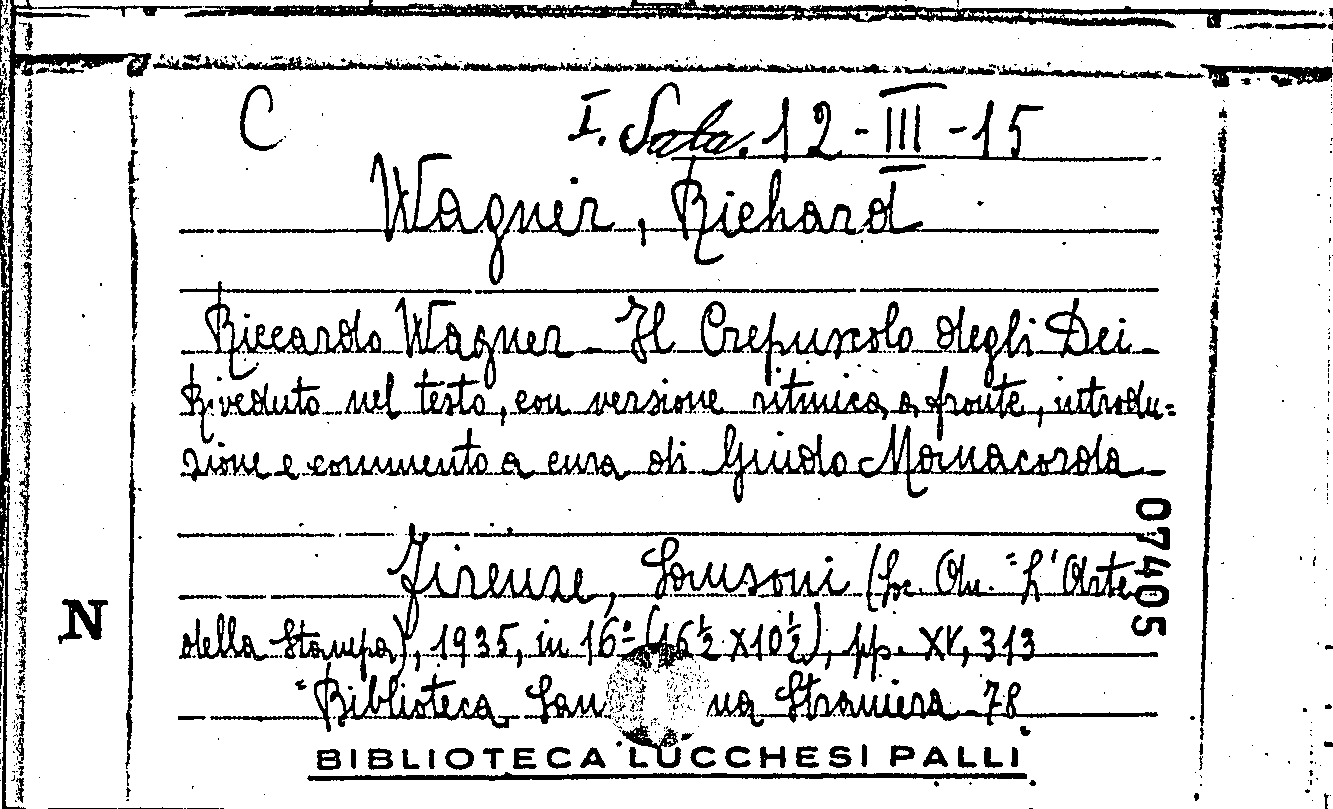 C I. Sala. 12-III-15
Wagner, Richard
Riccardo Wagner - Il Crepuscolo degli Dei -
Riveduto nel testo, con versione ritmica a fronte, introdu=
zione e commento a cura di Guido Manacorda
07405
Firenze, Sansoni (Sc. An. "L'Arte
N
della Stampa), 1935, in 16º (16½ x 10½), pp. XV, 313
"Biblioteca San na Straniera - 78
BIBLIOTECA LUCCHESI PALLI